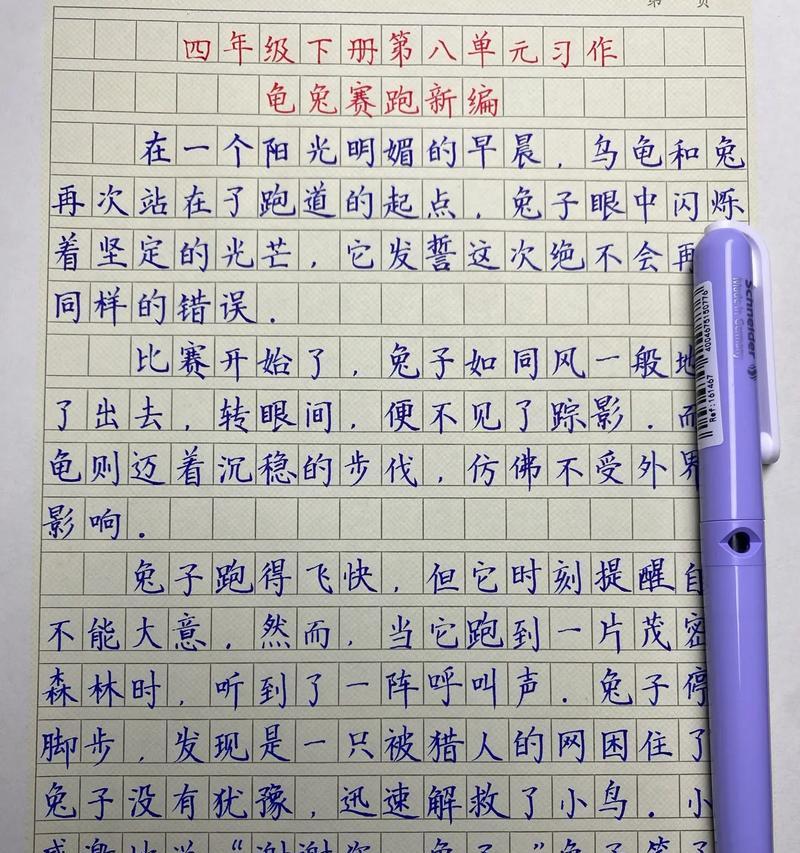 第 页
四年级下册第八单元习作
龟兔赛跑新编
在一个阳光明媚的早晨，乌龟和兔
再次站在了跑道的起点，兔子眼中闪烁
着坚定的光芒，它发誓这次绝不会再
同样的错误．
比赛开始了，兔子如同风一般地
了出去，转眼间，便不见了踪影．而
龟则迈着沉稳的步伐，仿佛不受外界
影响．
兔子跑得飞快，但它时刻提醒自
不能大意，然而，当它跑到一片茂密
森林时，听到了一阵呼叫声．兔子停
脚步，发现是一只被猎人的网困住了
兔子没有犹豫，迅速解救了小鸟．小
Schneider
Made in Germany
Ref: 161467